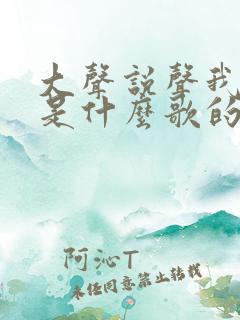 大聲說聲我
是什麼歌的
阿沁T
未经同意禁止转载